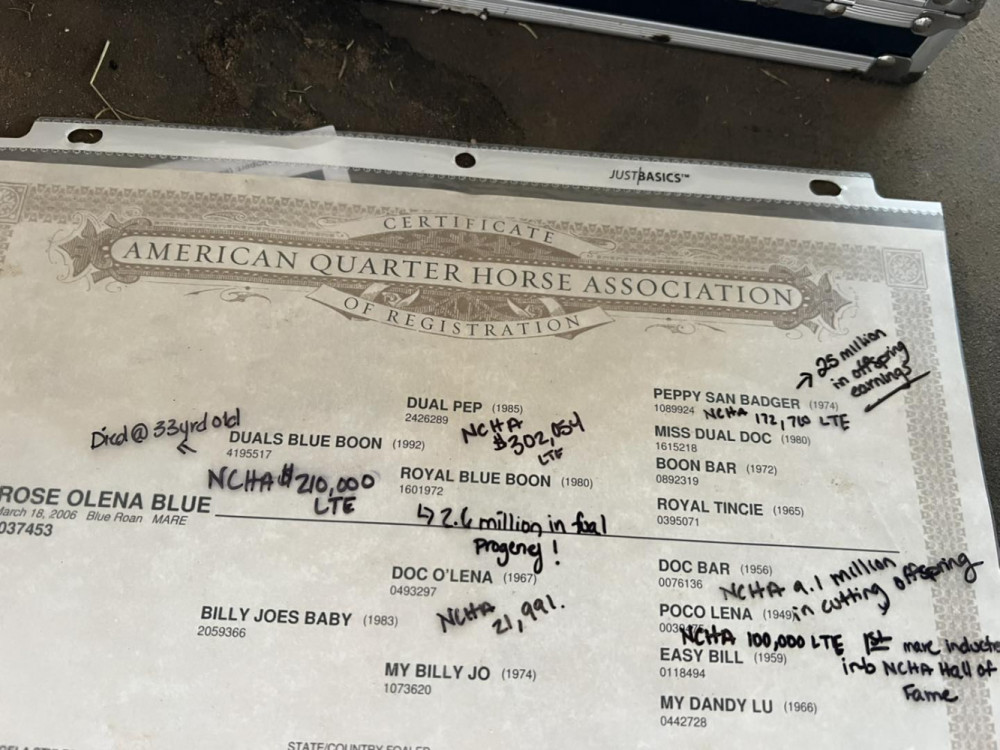 JUSTBASICS™
CERTIFICATE
AMERICAN QUARTER HORSE ASSOCIATION
OF REGISTRATION
→ 25 million
in offspring
earnings
PEPPY SAN BADGER (1974)
1089924 NCHA 172,710 LTE
DUAL PEP (1985)
2426289
NCHA
$302,054
LTE
MISS DUAL DOC (1980)
1615218
Died @ 33yrd old
DUALS BLUE BOON (1992)
4195517
NCHA $210,000
LTE
BOON BAR (1972)
0892319
ROYAL BLUE BOON (1980)
1601972
↳ 2.6 million in foal
progeney!
ROYAL TINCIE (1965)
0395071
ROSE OLENA BLUE
March 18, 2006 Blue Roan MARE
037453
DOC BAR (1956)
0076136
NCHA 9.1 million
in cutting offspring
DOC O'LENA (1967)
0493297
NCHA
21,991.
POCO LENA (1949)
NCHA 100,000 LTE 1st mare inducte
into NCHA Hall of
Fame
BILLY JOES BABY (1983)
2059366
EASY BILL (1959)
0118494
MY BILLY JO (1974)
1073620
MY DANDY LU (1966)
0442728
STATE/COUNTRY FOALED